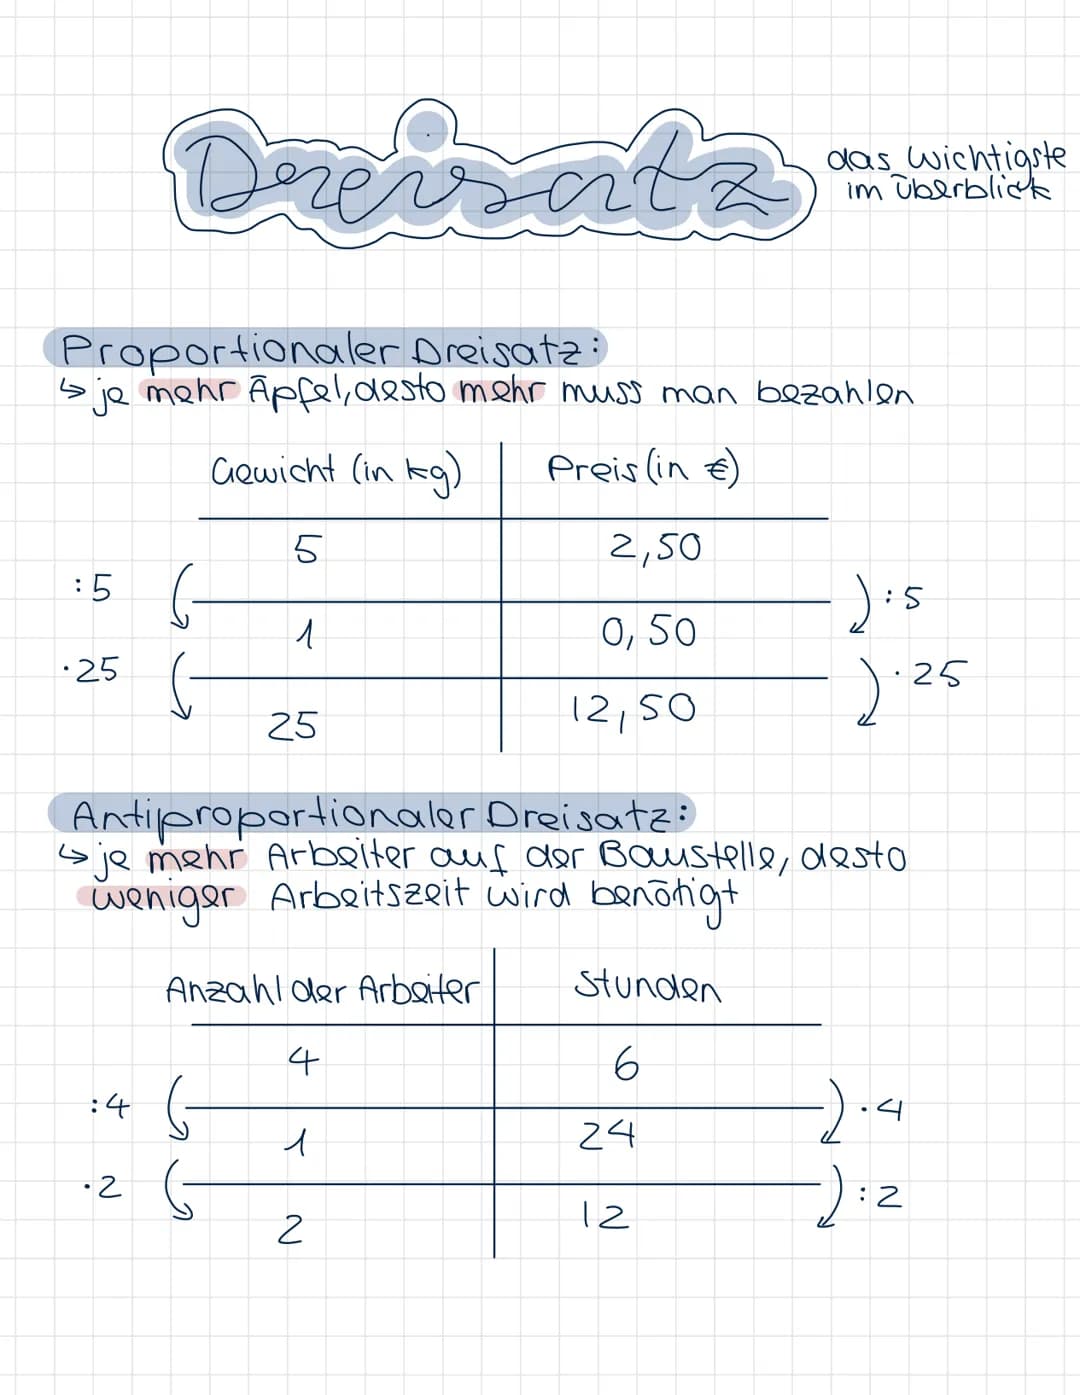 Dreisatz
das Wichtigste
im Überblick
Proportionaler Dreisatz:
↳ je mehr Äpfel, desto mehr muss man bezahlen
Gewicht (in kg) Preis (in €)
5 2,50
:5 :5
1 0,50
·25 ·25
25 12,50
Antiproportionaler Dreisatz:
↳ je mehr Arbeiter auf der Baustelle, desto
weniger Arbeitszeit wird benötigt
Anzahl der Arbeiter Stunden
4 6
:4 ·4
1 24
·2 :2
2 12